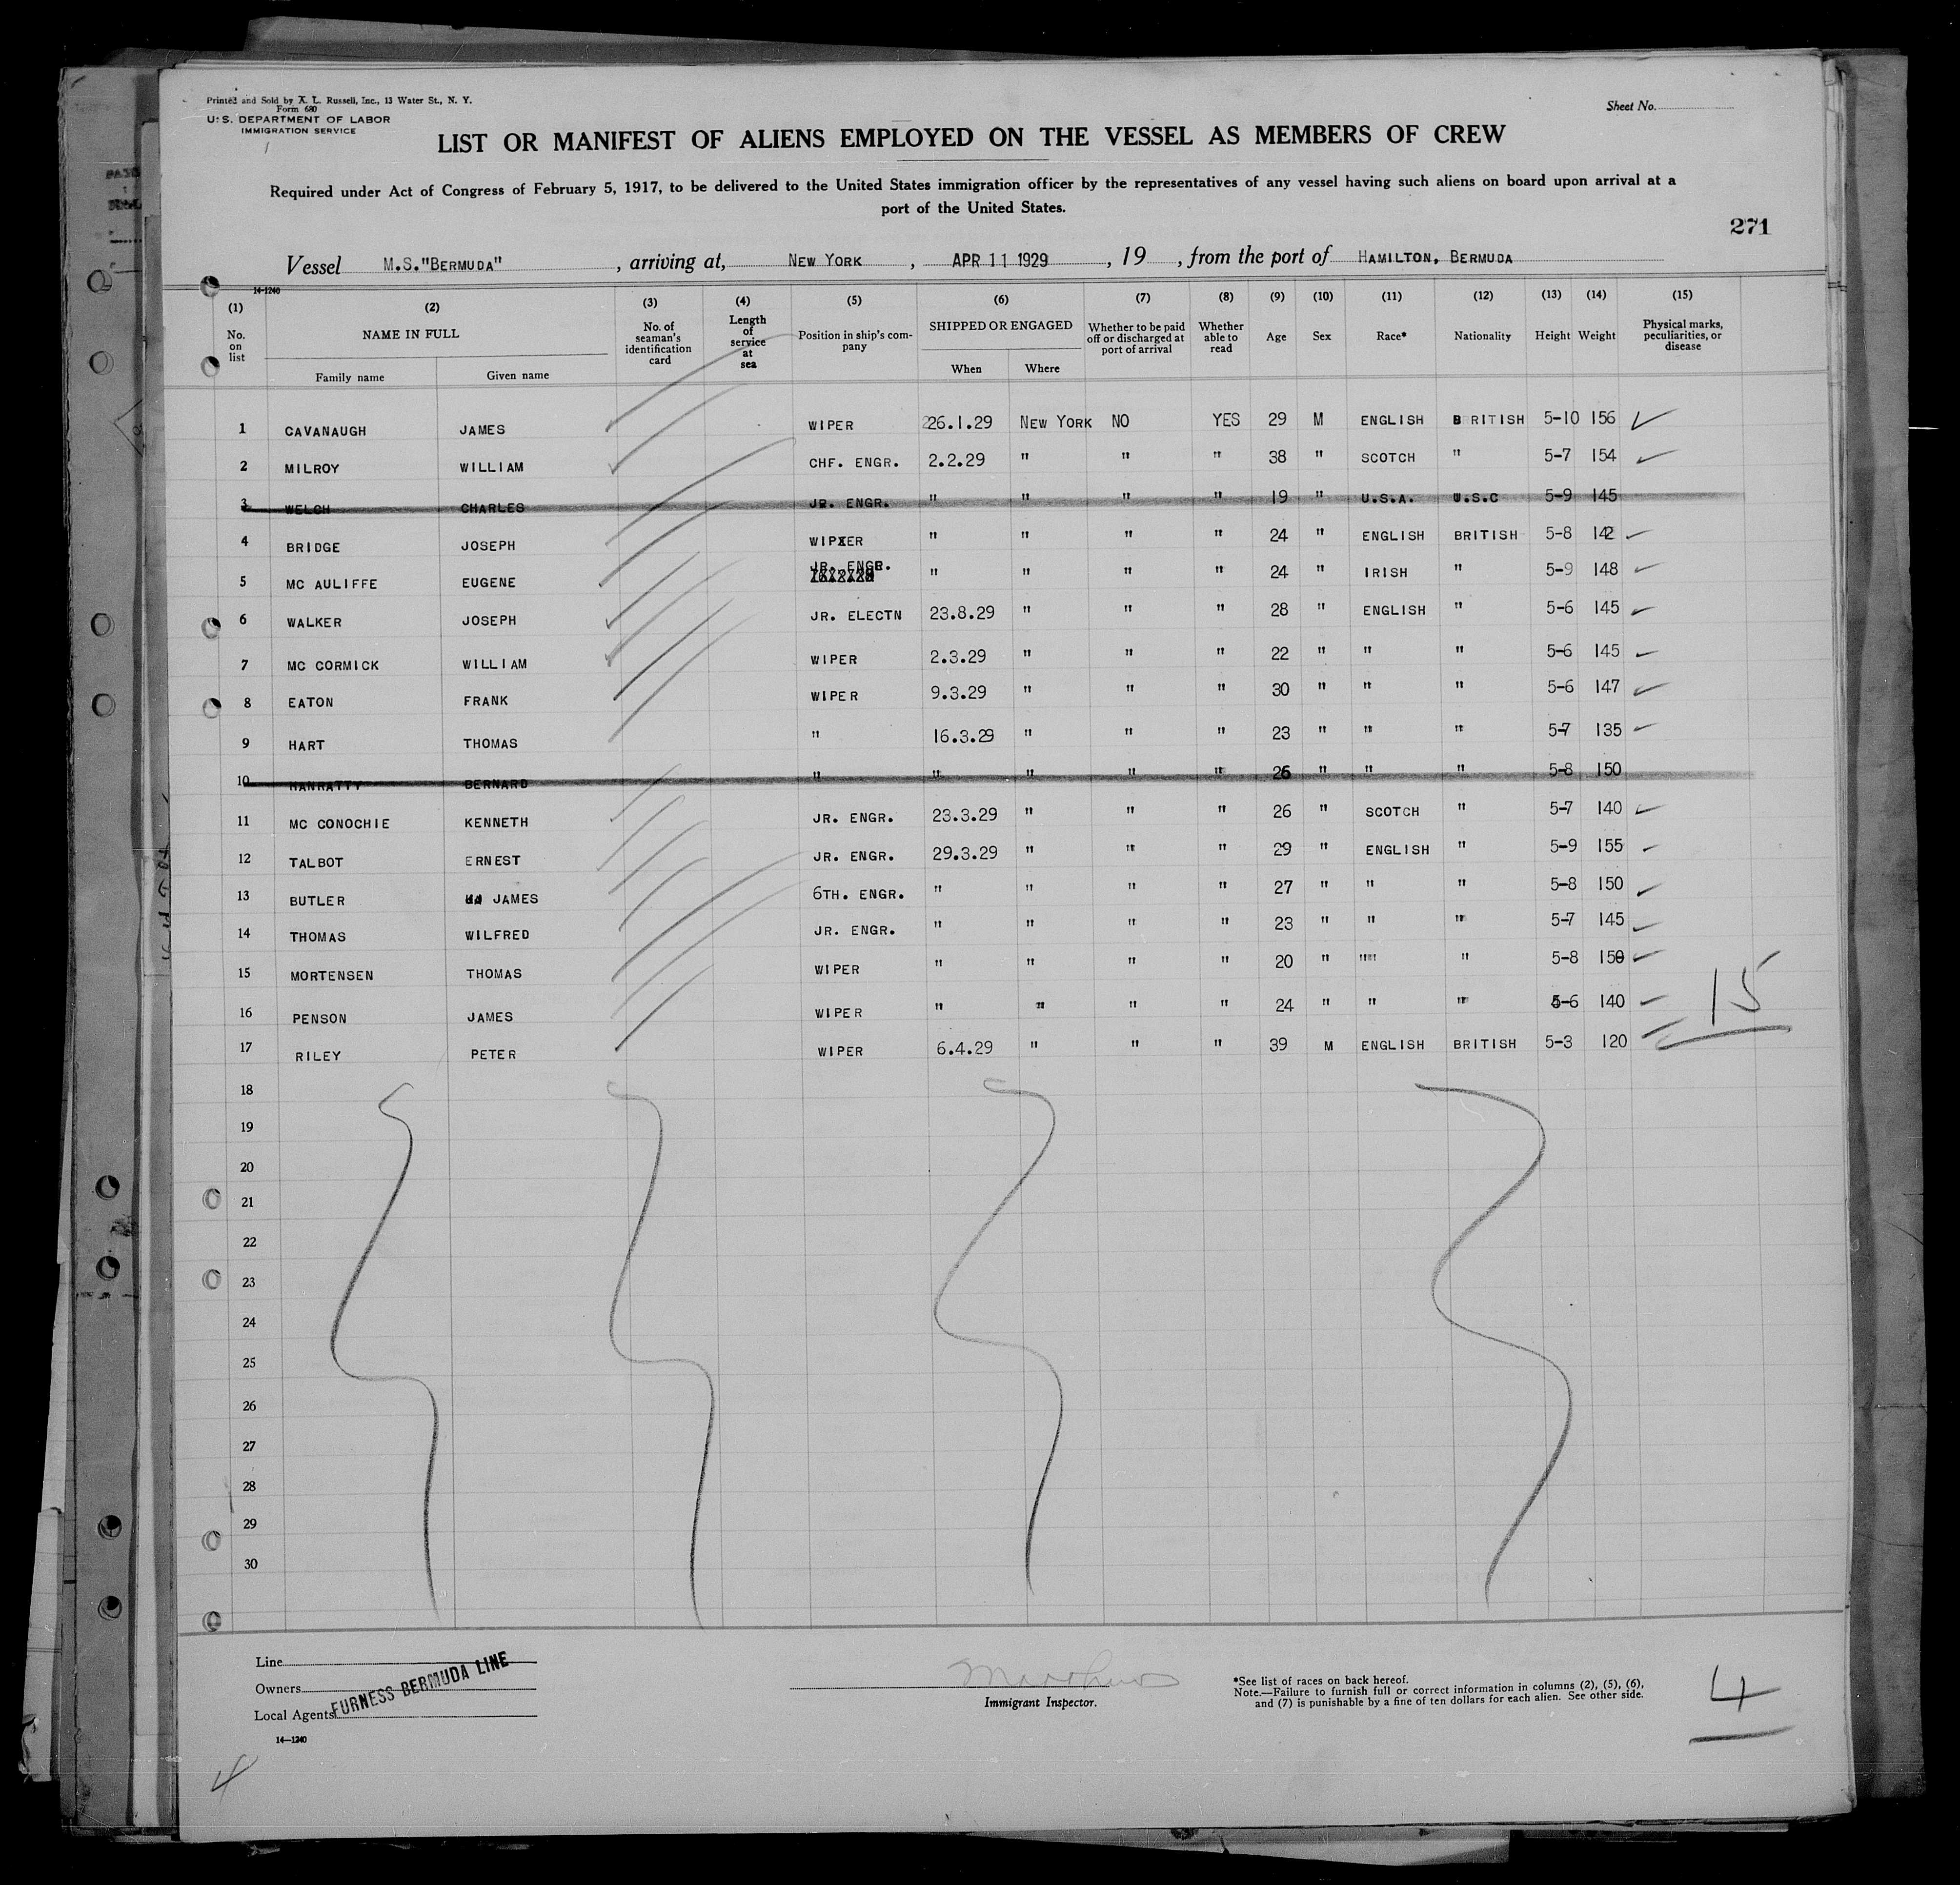 Printed and Sold by A. L. Russell, Inc., 13 Water St., N. Y.
Form 680
U. S. DEPARTMENT OF LABOR
IMMIGRATION SERVICE
Sheet No.
LIST OR MANIFEST OF ALIENS EMPLOYED ON THE VESSEL AS MEMBERS OF CREW
Required under Act of Congress of February 5, 1917, to be delivered to the United States immigration officer by the representatives of any vessel having such aliens on board upon arrival at a
port of the United States.
271
Vessel M.S."BERMUDA", arriving at, NEW YORK, APR 11 1929, 19 , from the port of HAMILTON, BERMUDA
14-1240
(1) (2) (3) (4) (5) (6) (7) (8) (9) (10) (11) (12) (13) (14) (15)
No. on list NAME IN FULL Family name Given name No. of seaman's identification card Length of service at sea Position in ship's company SHIPPED OR ENGAGED When Where Whether to be paid off or discharged at port of arrival Whether able to read Age Sex Race* Nationality Height Weight Physical marks, peculiarities, or disease
1 CAVANAUGH JAMES WIPER 26.1.29 NEW YORK NO YES 29 M ENGLISH BRITISH 5-10 156
2 MILROY WILLIAM CHF. ENGR. 2.2.29 " " " 38 " SCOTCH " 5-7 154
3 WELCH CHARLES JR. ENGR. " " " " 19 " U.S.A. U.S.C 5-9 145
4 BRIDGE JOSEPH WIPXER " " " " 24 " ENGLISH BRITISH 5-8 142
5 MC AULIFFE EUGENE JR. ENGR. " " " " 24 " IRISH " 5-9 148
6 WALKER JOSEPH JR. ELECTN 23.8.29 " " " 28 " ENGLISH " 5-6 145
7 MC CORMICK WILLIAM WIPER 2.3.29 " " " 22 " " " 5-6 145
8 EATON FRANK WIPER 9.3.29 " " " 30 " " " 5-6 147
9 HART THOMAS " 16.3.29 " " " 23 " " " 5-7 135
10 HANRATTY BERNARD " " " " " 26 " " " 5-8 150
11 MC CONOCHIE KENNETH JR. ENGR. 23.3.29 " " " 26 " SCOTCH " 5-7 140
12 TALBOT ERNEST JR. ENGR. 29.3.29 " " " 29 " ENGLISH " 5-9 155
13 BUTLER JAMES 6TH. ENGR. " " " " 27 " " " 5-8 150
14 THOMAS WILFRED JR. ENGR. " " " " 23 " " " 5-7 145
15 MORTENSEN THOMAS WIPER " " " " 20 " "" " 5-8 150
16 PENSON JAMES WIPER " " " " 24 " " " 5-6 140
17 RILEY PETER WIPER 6.4.29 " " " 39 M ENGLISH BRITISH 5-3 120
15
18
19
20
21
22
23
24
25
26
27
28
29
30
Line
Owners
Local Agents
FURNESS BERMUDA LINE
14—1240
Immigrant Inspector.
*See list of races on back hereof.
Note.—Failure to furnish full or correct information in columns (2), (5), (6),
and (7) is punishable by a fine of ten dollars for each alien. See other side.
4
4